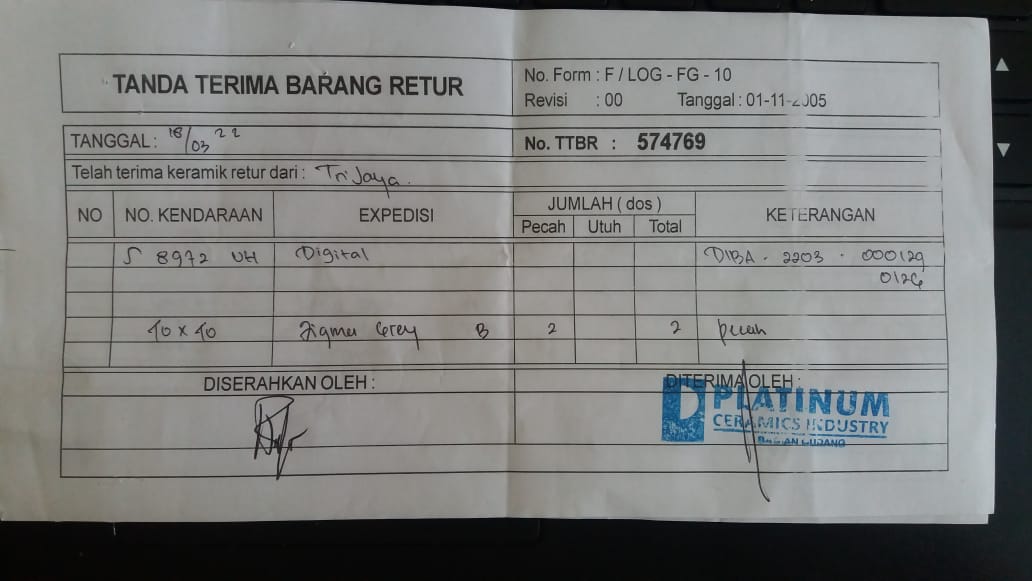 TANDA TERIMA BARANG RETUR
No. Form : F / LOG - FG - 10
Revisi : 00 Tanggal : 01-11-2005
TANGGAL : 18/03 22
No. TTBR : 574769
Telah terima keramik retur dari : Tri Jaya.
NO NO. KENDARAAN EXPEDISI JUMLAH ( dos ) KETERANGAN
Pecah Utuh Total
S 8972 UH Digital DIBA - 2203 - 000129
0126
40 x 40 Grey B 2 2 pecah
DISERAHKAN OLEH : DITERIMA OLEH :
PLATINUM
CERAMICS INDUSTRY
BAGIAN GUDANG